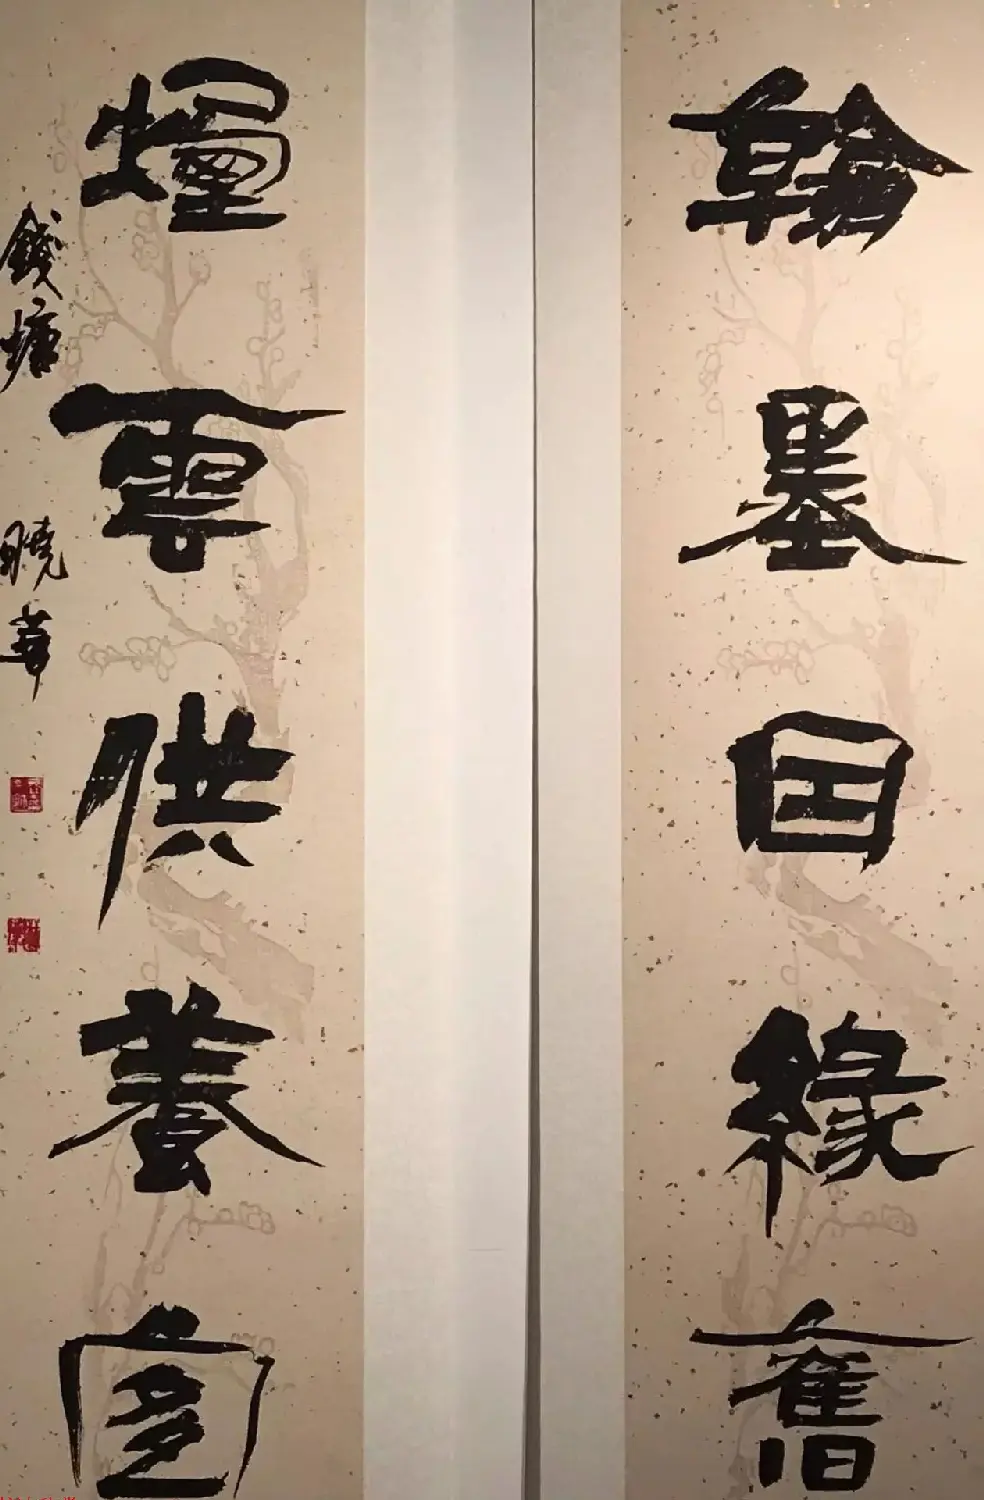 翰墨因緣舊
煙雲供養宜
錢塘曉華